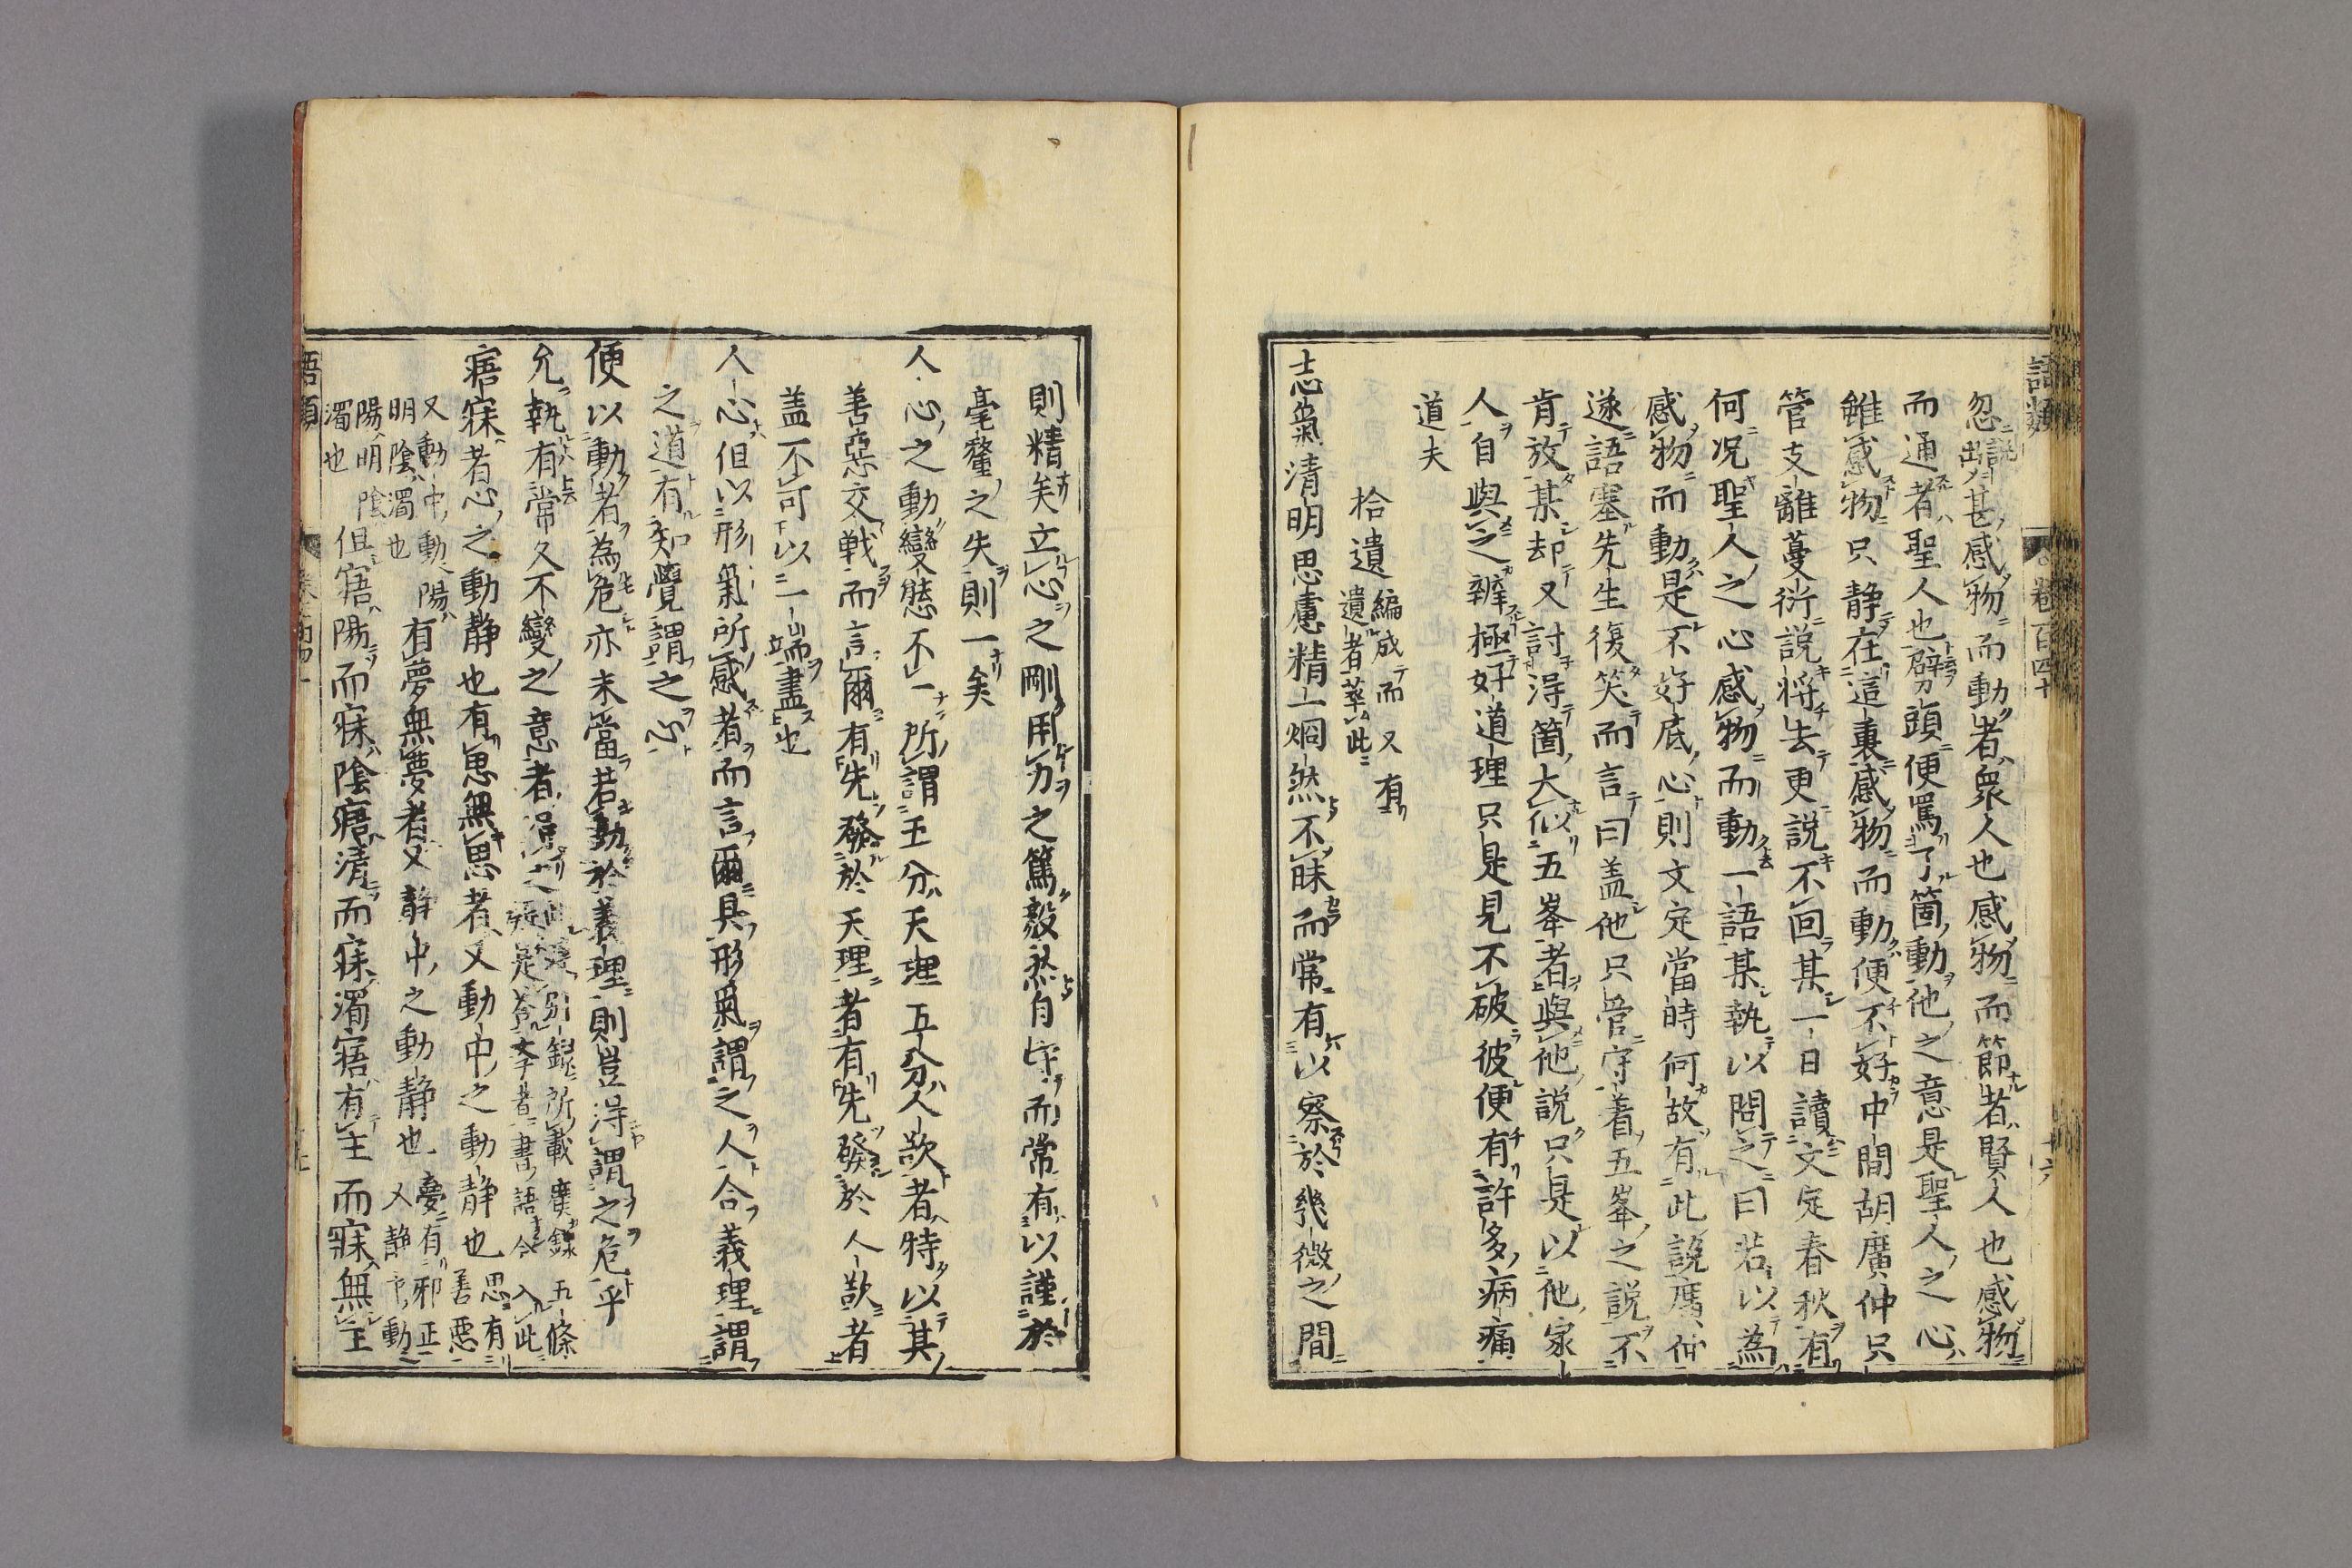 語類　卷百四十　十六
忽說出甚感物而動者衆人也感物而節者賢人也感物
而通者聖人也劈頭便罵了箇動他之意是聖人之心
雖感物只静在這裏感物而動便不好中間胡廣仲只
管支離蔓衍説将去更説不回某一日讀文定春秋有
何况聖人之心感物而動一語某執以問之曰若以為
感物而動是不好底心則文定當時何故有此説廣仲
遂語塞先生復笑而言曰盖他只管守着五峯之説不
肯放某却又討得箇大似五峯者與他説只是以他家
人自與之辨極好道理只是見不破彼便有許多病痛
道夫
拾遺
編成而又有
遺者萃此
志氣清明思慮精一炯然不昧而常有以察於幾微之間
則精矣立心之剛用力之篤毅然自守而常有以謹於
毫釐之失則一矣
人心之動變態不一所謂五分天理五分人欲者特以其
善惡交戦而言爾有先發於天理者有先發於人欲者
盖不可以一端盡也
人心但以形氣所感者而言爾具形氣謂之人合義理謂
之道有知覺謂之心
便以動者為危亦未當若動於義理則豈得謂之危乎
允執有常久不變之意
別録所載廣録五條
疑是答李者書語合入此
寤寐者心之動静也有思無思者又動中之動静也
思有
善惡
又動中動陽
明陰濁也
有夢無夢者又静中之動静也
夢有邪正
又静中動
陽明陰
濁也
但寤陽而寐陰寤清而寐濁寤有主而寐無主
語類　十七